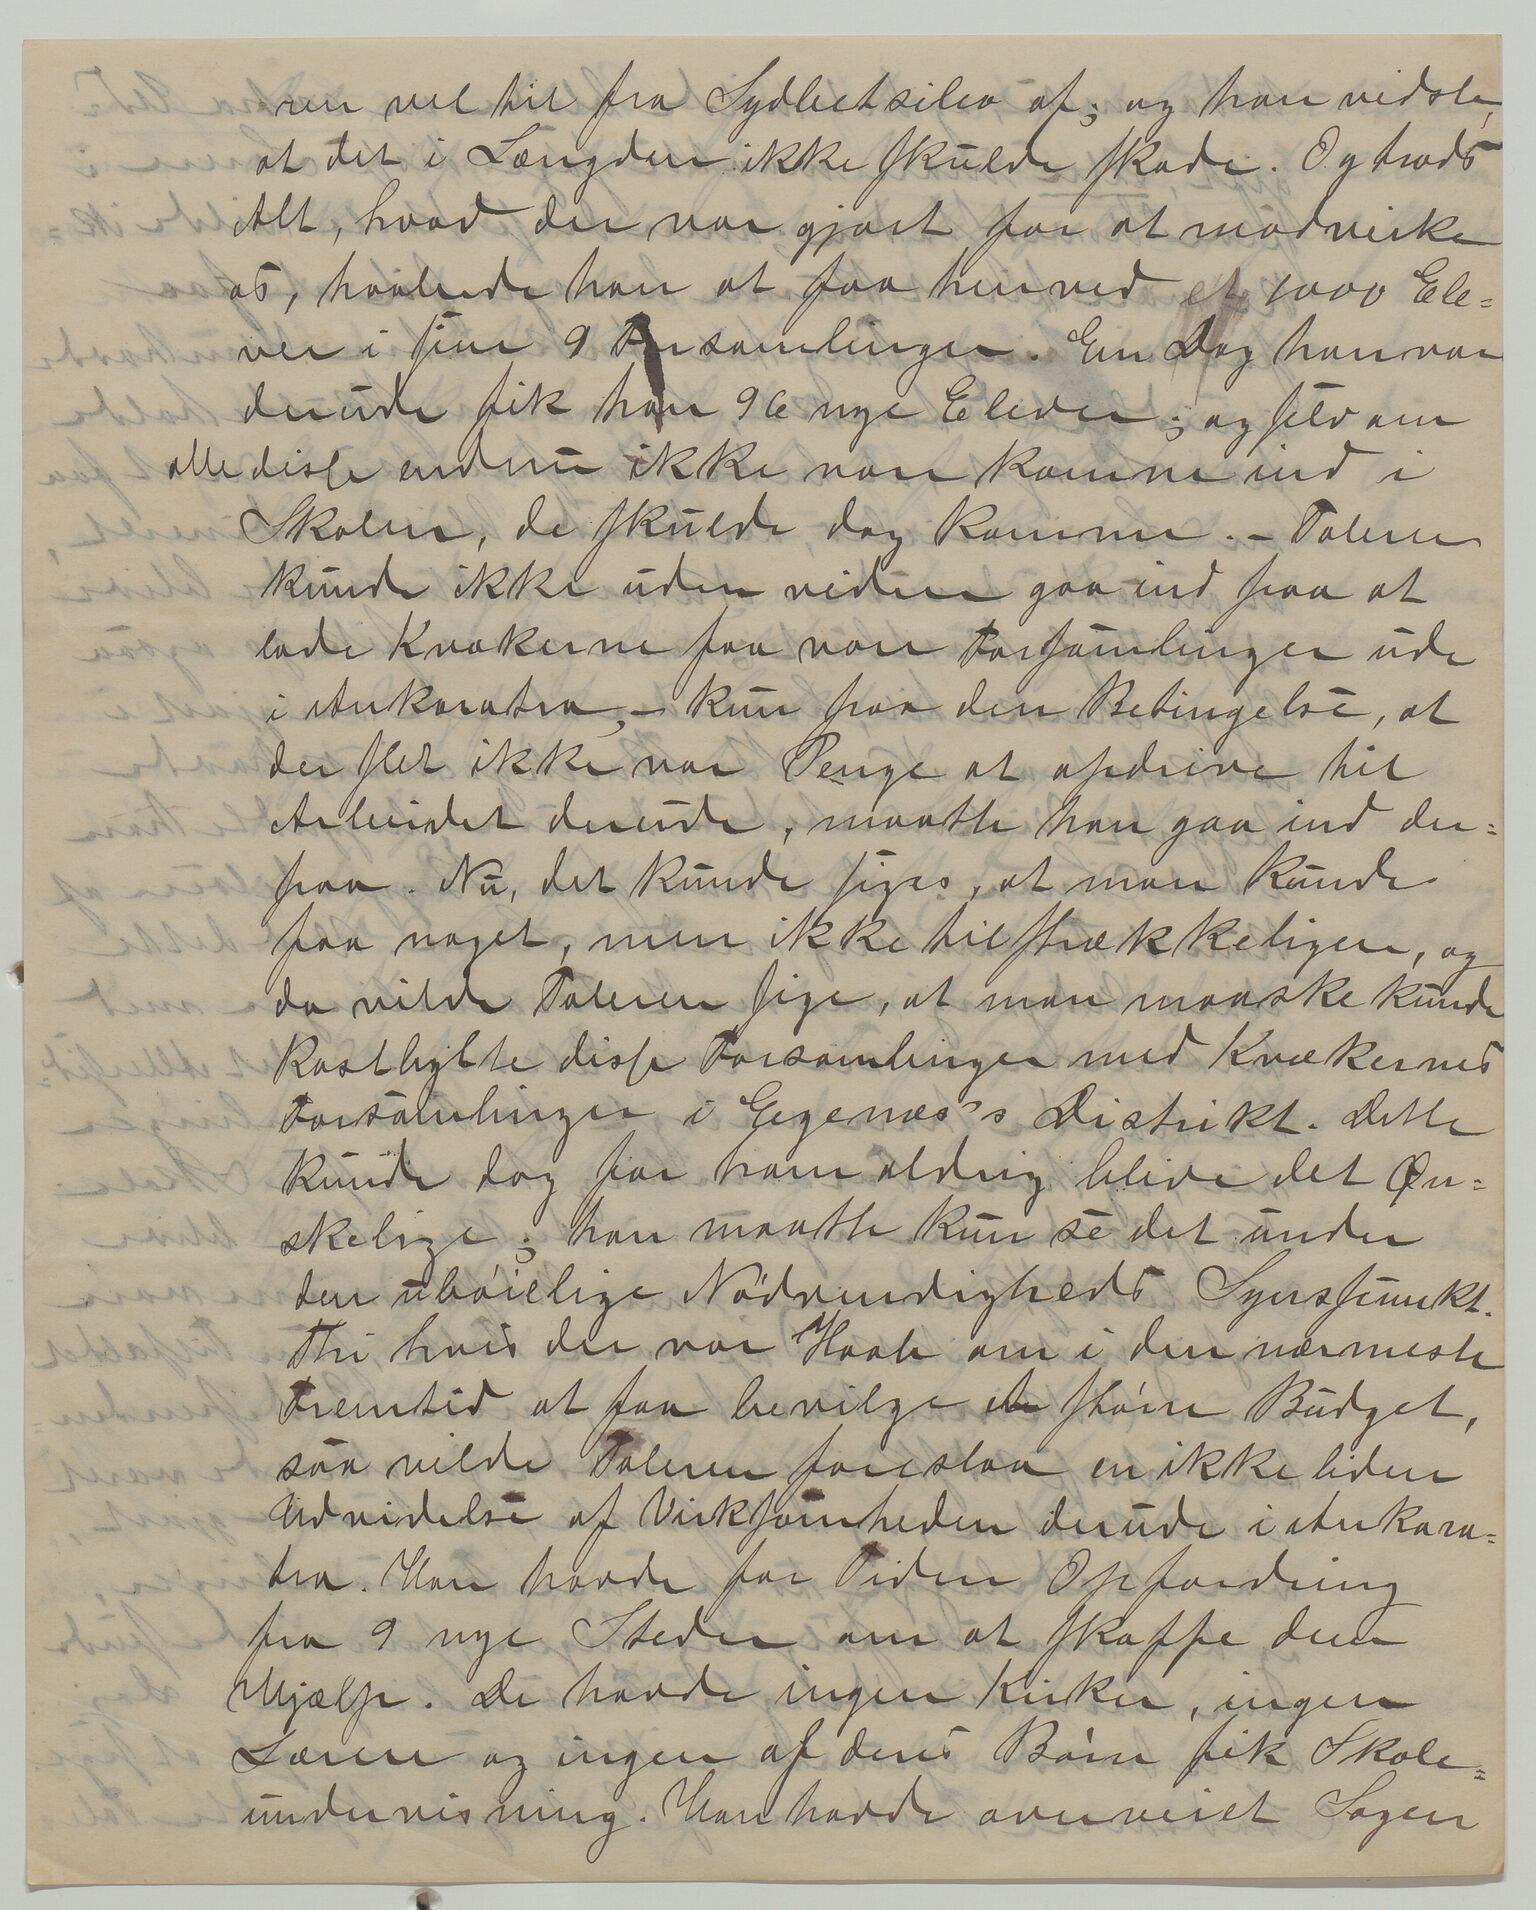 ren vel til fra Sydbetsileo af; og han vidste,
at det i Længden ikke skulde skade. Og trods
Alt, hvad der var gjort for at modvirke
os, haabede han at faa henved et 1000 Ele-
ver i sine 9 Forsamlinger. En Dag han var
derude fik han 96 nye Elever; og selv om
alle disse endnu ikke vare komne ind i
Skolen, de skulde dog komme. - Taleren
kunde ikke uden videre gaa ind paa at
lade Kvækerne faa vore Forsamlinger ude
i Ankaratra, - kun paa den Betingelse, at
der slet ikke var Penge at opdrive til
Arbeidet derude, maatte han gaa ind der-
paa. Nu, det kunde siges, at man kunde
faa noget, men ikke tilstrækkeligen, og
da vilde Taleren sige, at man maaske kunde
Kostbytte disse Forsamlinger med Kvækernes
Forsamlinger i Egenæs's Distrikt. Dette
kunde dog for ham aldrig blive det Øn-
skelige; han maatte kun se det under
den ubøielige Nødvendigheds Synspunkt.
Thi hvis der var Haab om i den nærmeste
Fremtid at faa bevilge et større Budget,
saa vilde Taleren foreslaa en ikke liden
Udvidelse af Virksomheden derude i Ankara-
tra. Han havde for Tiden Opfordring
fra 9 nye Steder om at skaffe dem
Hjælp. De havde ingen Kirker, ingen
Lærere og ingen af deres Børn fik Skole-
undervisning. Han havde overveiet Sagen